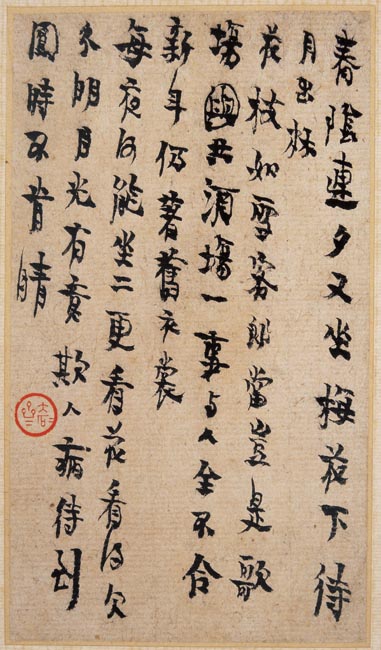 春陰連夕又坐梅花下待
月出林
花枝如雪客郎當豈是歌
場共酒場一事与人全不合
新年仍著舊衣裳
每夜何能坐二更看花看得欠
分明月光有意欺人病待到
圓時不肯晴